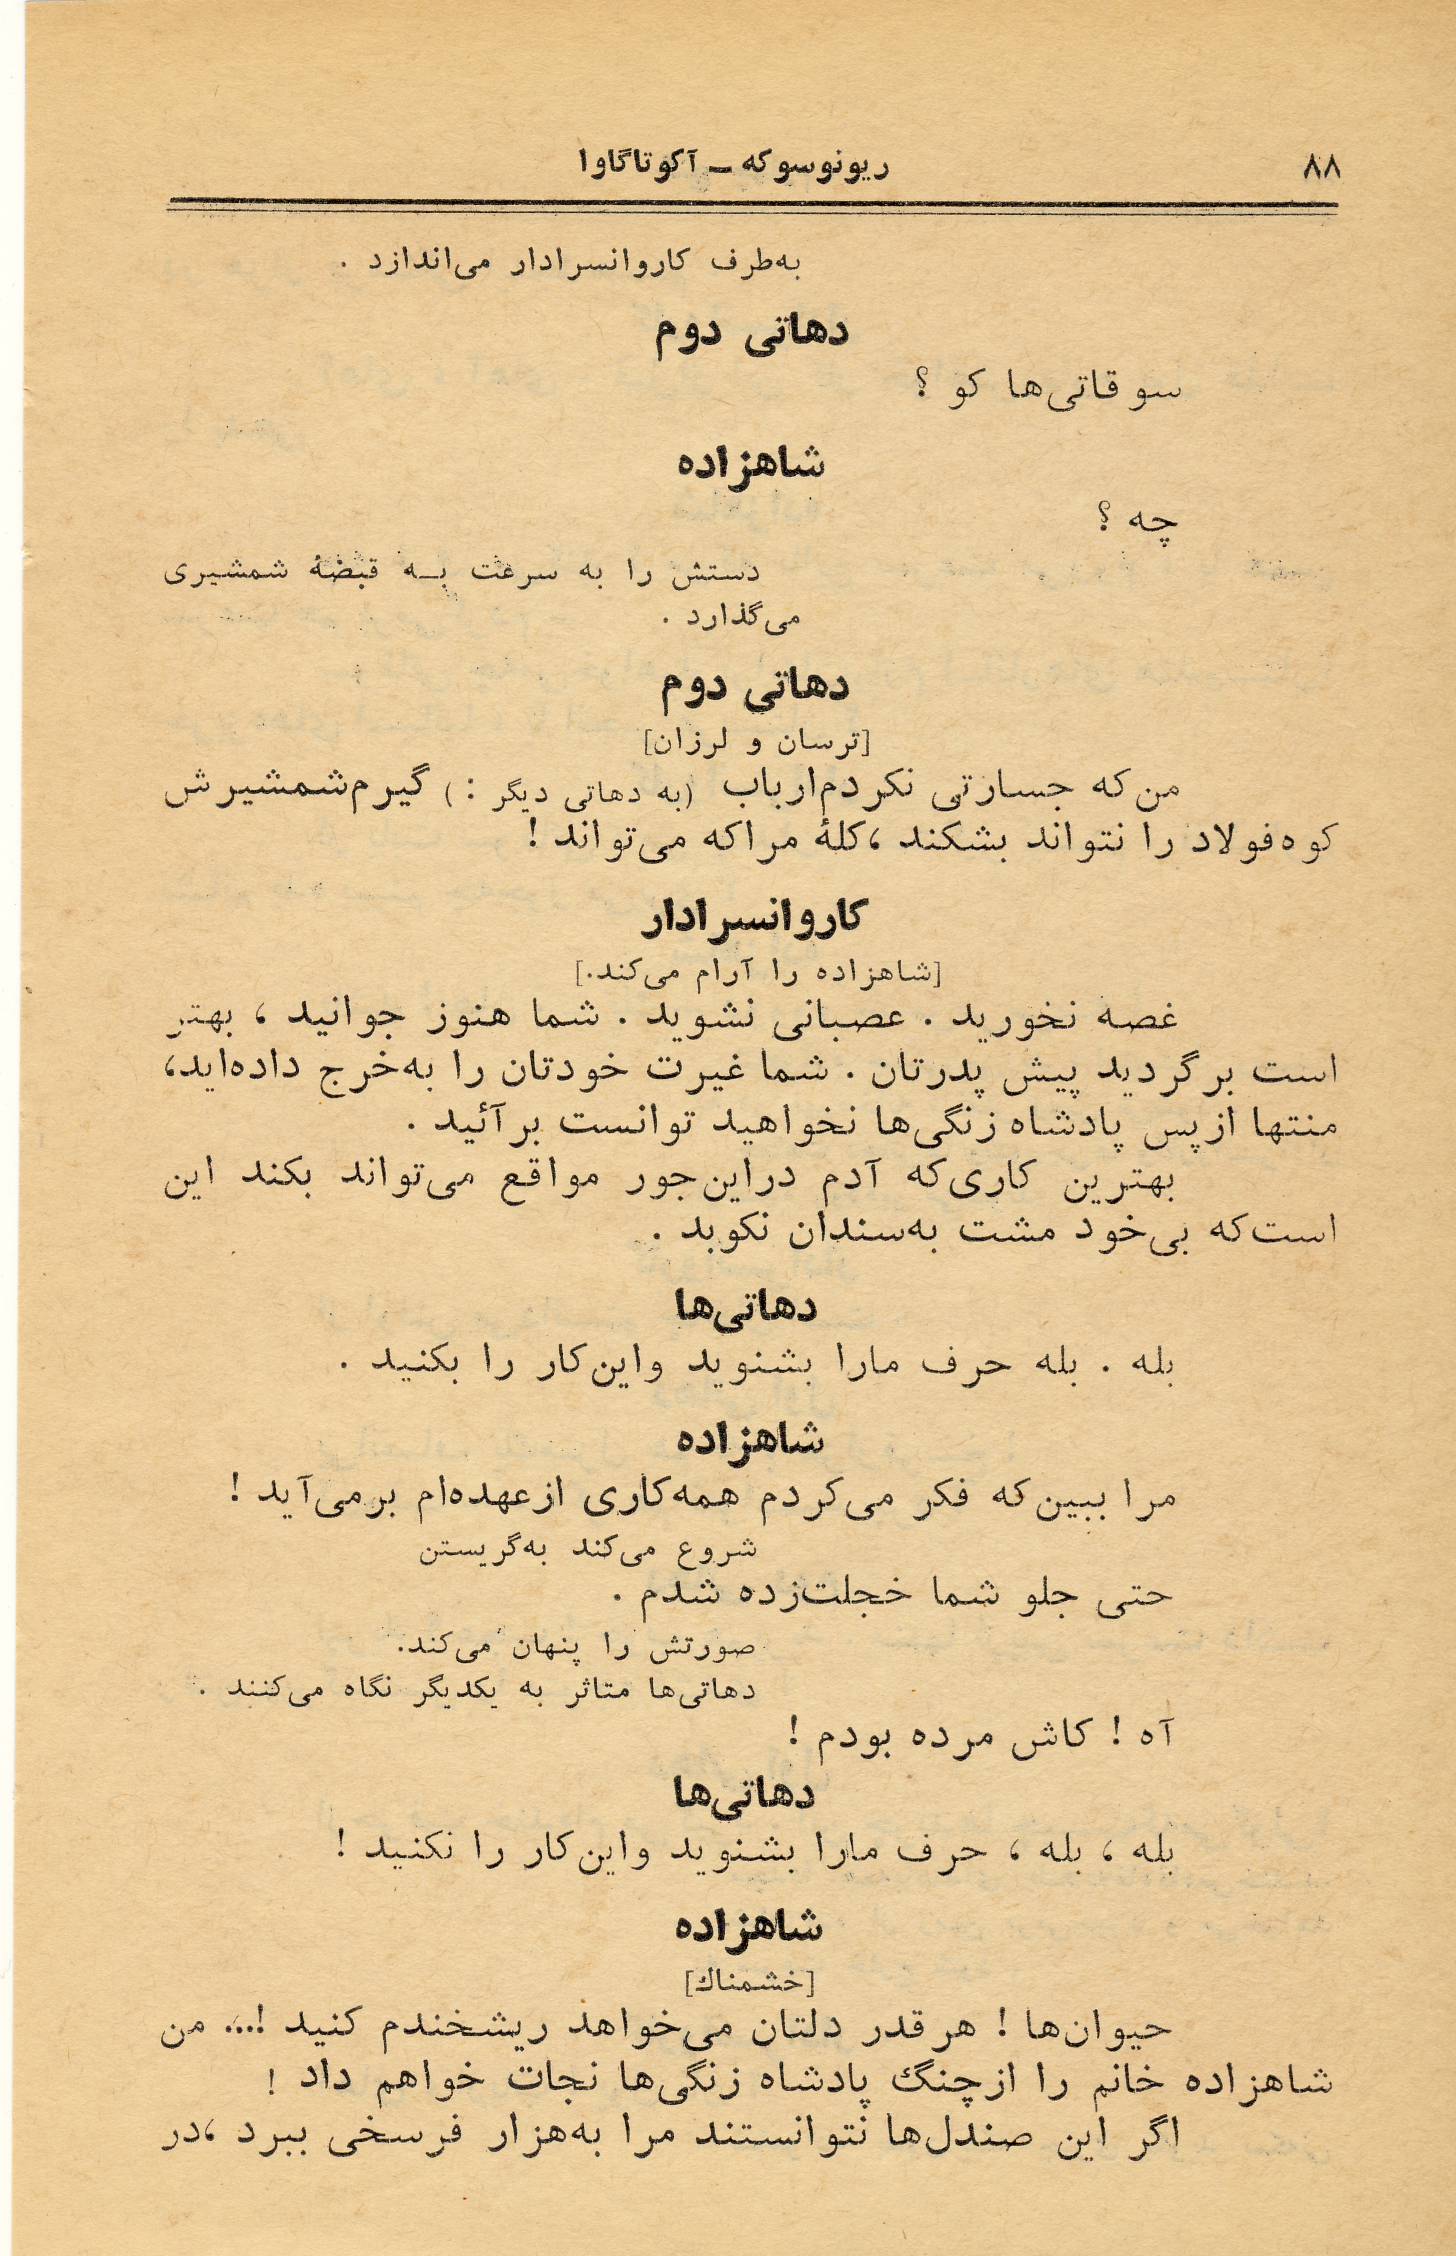 ۸۸
ریونوسوکه ــ آکوتاگاوا
به‌طرف کاروانسرادار می‌اندازد .
دهاتی دوم
سوقاتی‌ها کو ؟
شاهزاده
چه ؟
دستش را به سرعت بــه قبضهٔ شمشیری
می‌گذارد .
دهاتی دوم
[ترسان و لرزان]
من‌که جسارتی نکردم‌ارباب (به دهاتی دیگر : ) گیرم‌شمشیرش
کوه‌فولاد را نتواند بشکند ،کلهٔ مراکه می‌تواند !
کاروانسرادار
[شاهزاده را آرام می‌کند.]
غصه نخورید . عصبانی نشوید . شما هنوز جوانید ، بهتر
است برگردید پیش پدرتان . شما غیرت خودتان را به‌خرج داده‌اید،
منتها ازپس پادشاه زنگی‌ها نخواهید توانست برآئید .
بهترین کاری‌که آدم دراین‌جور مواقع می‌تواند بکند این
است‌که بی‌خود مشت به‌سندان نکوبد .
دهاتی‌ها
بله . بله حرف مارا بشنوید واین‌کار را بکنید .
شاهزاده
مرا ببین‌که فکر می‌کردم همه‌کاری ازعهده‌ام برمی‌آید !
شروع می‌کند به‌گریستن
حتی جلو شما خجلت‌زده شدم .
صورتش را پنهان می‌کند.
دهاتی‌ها متاثر به یکدیگر نگاه می‌کنند .
آه ! کاش مرده بودم !
دهاتی‌ها
بله ، بله ، حرف مارا بشنوید واین‌کار را نکنید !
شاهزاده
[خشمناك]
حیوان‌ها ! هرقدر دلتان می‌خواهد ریشخندم کنید !... من
شاهزاده خانم را ازچنگ پادشاه زنگی‌ها نجات خواهم داد !
اگر این صندل‌ها نتوانستند مرا به‌هزار فرسخی ببرد ،در